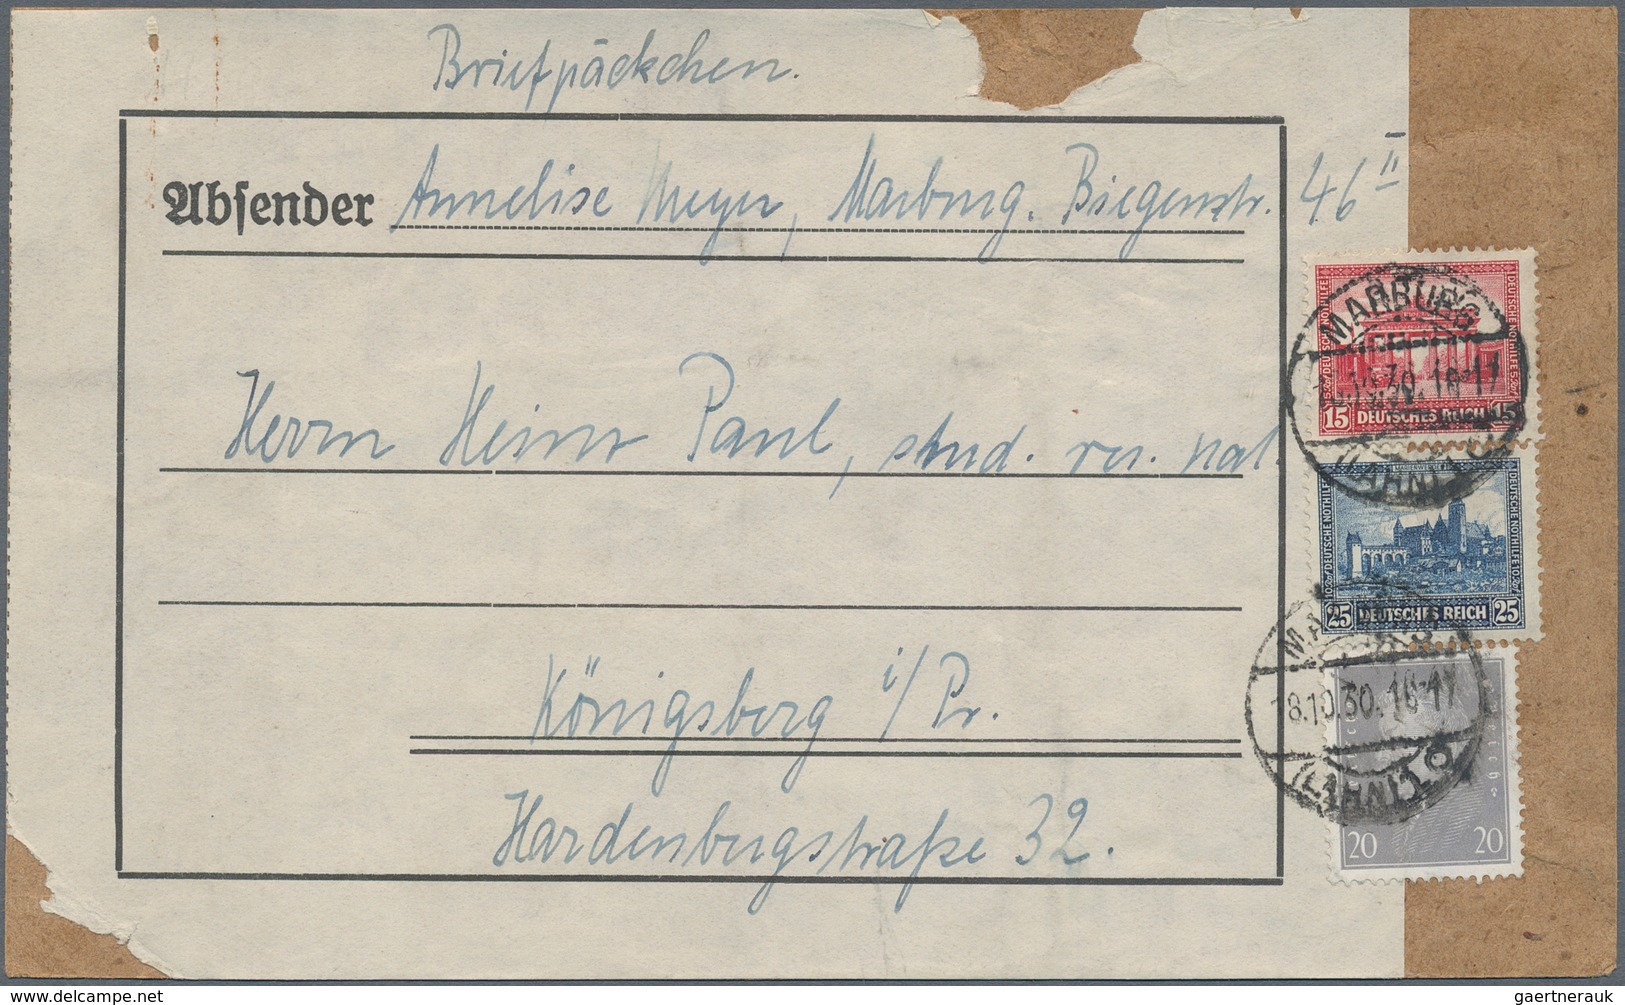 Briefpäckchen.
Absender Annelise Meyer, Marburg. Biegenstr. 46 II
Herrn Heinr Paul, stud. rer. nat.
Königsberg i/Pr.
Hardenbergstraße 32.
DEUTSCHE NOTHILFE
15 DEUTSCHES REICH 15
MARBURG
(LAHN) 1
DEUTSCHE NOTHILFE
25 DEUTSCHES REICH 25
18.10.30.16-17
(LAHN) 1
20 20
delcampe.net
gaertnerauk